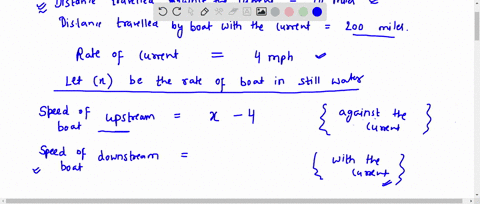 Distance travelled against the current =
Distance travelled by boat with the current = 200 miles.
Rate of current = 4 mph
Let (x) be the rate of boat in still water
Speed of boat upstream = x - 4 { against the current }
Speed of boat downstream = { with the current }